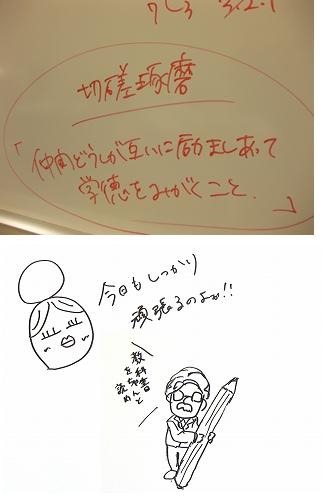 切磋琢磨
「仲間どうしが互いに励ましあって
学徳をみがくこと.」
今日もしっかり
頑張るのよぉ!!
教科書
をちゃんと
読め